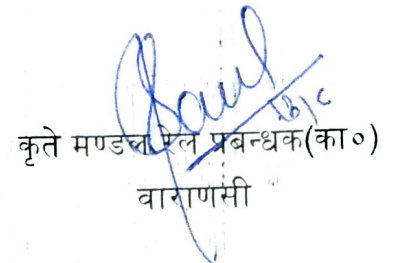 कृते मण्डल रेल प्रबन्धक(का०)
वाराणसी